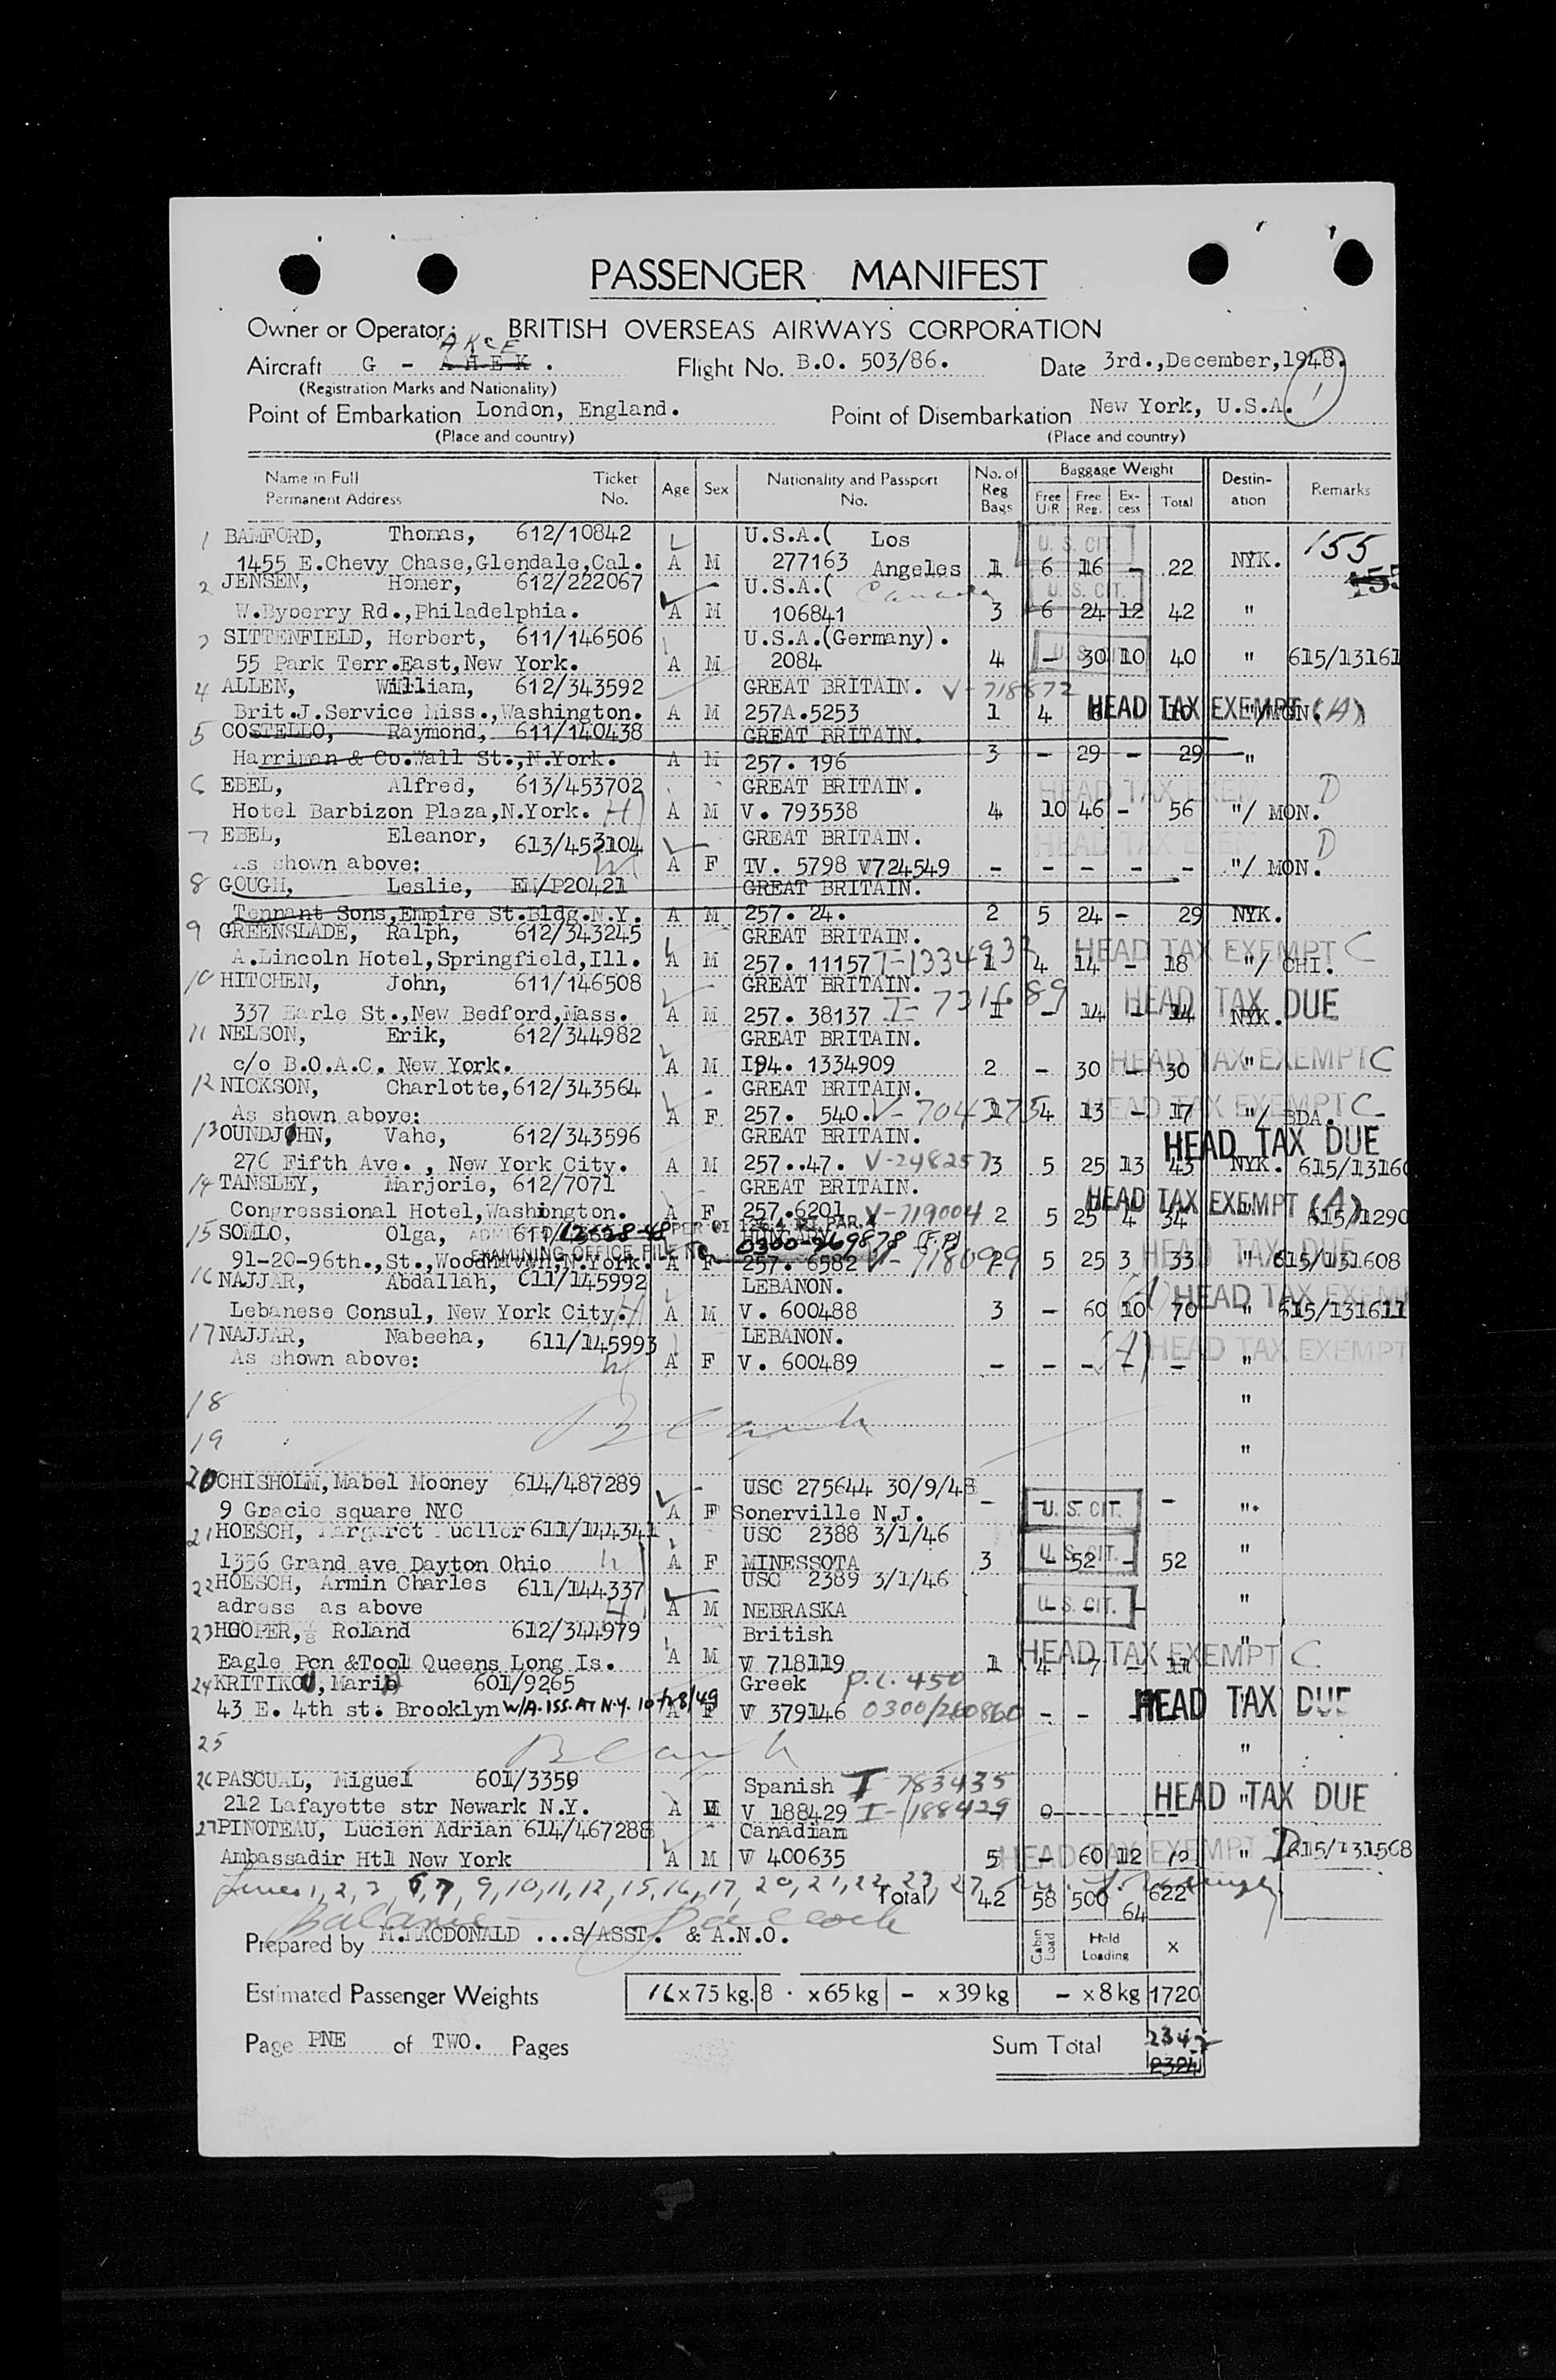 PASSENGER MANIFEST
Owner or Operator: BRITISH OVERSEAS AIRWAYS CORPORATION
AKCE
Aircraft G - AHEK . Flight No. B.O. 503/86. Date 3rd.,December,1948.
(Registration Marks and Nationality)
Point of Embarkation London, England. Point of Disembarkation New York, U.S.A. 1
(Place and country) (Place and country)
Name in Full Permanent Address Ticket No. Age Sex Nationality and Passport No. No. of Reg Bags Baggage Weight Free U/R Free Reg. Excess Total Destination Remarks
1 BAMFORD, Thomas, 612/10842 U.S.A.( Los U. S. CIT. 155
1455 E.Chevy Chase,Glendale,Cal. A M 277163 Angeles 1 6 16 - 22 NYK. 155
2 JENSEN, Homer, 612/222067 U.S.A.( Canada U. S. CIT.
W.Byberry Rd.,Philadelphia. A M 106841 3 6 24 12 42 "
3 SITTENFIELD, Herbert, 611/146506 U.S.A.(Germany).
55 Park Terr.East,New York. A M 2084 4 - 30 10 40 " 615/13161 U. S. CIT.
4 ALLEN, William, 612/343592 GREAT BRITAIN. V-718572
Brit.J.Service Miss.,Washington. A M 257A.5253 1 4 6 10 HEAD TAX EXEMPT (A)
5 COSTELLO, Raymond, 611/140438 GREAT BRITAIN.
Harriman & Co.Wall St.,N.York. A M 257. 196 3 - 29 - 29 "
6 EBEL, Alfred, 613/453702 GREAT BRITAIN. HEAD TAX EXEM D
Hotel Barbizon Plaza,N.York. H A M V. 793538 4 10 46 - 56 "/ MON.
7 EBEL, Eleanor, 613/453104 GREAT BRITAIN. HEAD TAX EXEM D
As shown above: A F TV. 5798 V724549 - - - - - "/ MON.
8 GOUGH, Leslie, EM/P20421 GREAT BRITAIN.
Tennant Sons,Empire St.Bldg.N.Y. A M 257. 24. 2 5 24 - 29 NYK.
9 GREENSLADE, Ralph, 612/343245 GREAT BRITAIN. HEAD TAX EXEMPT C
A.Lincoln Hotel,Springfield,Ill. A M 257. 11157 1 4 14 - 18 "/ CHI.
10 HITCHEN, John, 611/146508 GREAT BRITAIN. I-731689 HEAD TAX DUE
337 Earle St.,New Bedford,Mass. A M 257. 38137 1 - 14 - 14 NYK.
11 NELSON, Erik, 612/344982 GREAT BRITAIN.
c/o B.O.A.C. New York. A M I94. 1334909 2 - 30 - 30 " HEAD TAX EXEMPT C
12 NICKSON, Charlotte,612/343564 GREAT BRITAIN. HEAD TAX EXEMPT C
As shown above: A F 257. 540. V-704375 1 4 13 - 17 "/ BDA.
13 OUNDJOHN, Vahe, 612/343596 GREAT BRITAIN. HEAD TAX DUE
276 Fifth Ave. , New York City. A M 257..47. V-248257 3 5 25 13 43 NYK. 615/13160
14 TANSLEY, Marjorie, 612/7071 GREAT BRITAIN. HEAD TAX EXEMPT (A)
Congressional Hotel,Washington. A F 257.6201 V-719004 2 5 25 4 34 615/1290
15 SOMLO, Olga, 12-28-48 HUNGARY
EXAMINING OFFICE FILE No. 0300-969878 (F.P.)
91-20-96th.,St.,Woodhaven,N.York. A F 257. 6582 V-718099 2 5 25 3 33 " 615/131608 HEAD TAX DUE
16 NAJJAR, Abdallah, 611/145992 LEBANON. (A) HEAD TAX EXEM
Lebanese Consul, New York City. H A M V. 600488 3 - 60 10 70 " 615/131611
17 NAJJAR, Nabeeha, 611/145993 LEBANON. (A) HEAD TAX EXEMPT
As shown above: A F V. 600489 - - - - - "
18 Blank "
19 "
20 CHISHOLM,Mabel Mooney 614/487289 USC 275644 30/9/48
9 Gracie square NYC A F Sonerville N.J. - - U. S. CIT. - ".
21 HOESCH, Margaret Mueller 611/144341 USC 2388 3/1/46
1356 Grand ave Dayton Ohio h A F MINESSOTA 3 - 52 - 52 " U. S. CIT.
22 HOESCH, Armin Charles 611/144337 USC 2389 3/1/46
adress as above H A M NEBRASKA U. S. CIT. "
23 HOOPER, Roland 612/344979 British "
Eagle Pcn &Tool Queens Long Is. A M V 718119 1 4 7 - 11 HEAD TAX EXEMPT C
24 KRITIKOU, Maria 601/9265 Greek P.L. 450
43 E. 4th st. Brooklyn W/A.ISS.AT N.Y. 10/28/49 A F V 379146 0300/260860 - - - HEAD TAX DUE
25 Blank "
26 PASCUAL, Miguel 601/3359 Spanish I-783435
212 Lafayette str Newark N.Y. A M V 188429 I-188429 0 HEAD TAX DUE "
27 PINOTEAU, Lucien Adrian 614/467288 Canadian
Ambassadir Htl New York A M V 400635 5 - 60 12 " D 615/131568 HEAD TAX EXEMPT
Lines 1, 2, 3, 6, 7, 9, 10, 11, 12, 15, 16, 17, 20, 21, 22, 23, 27
Total 42 58 500 64 622
Balance
Prepared by M.MACDONALD ...S/ASST. & A.N.O. Cabin Load Hold Loading x
Estimated Passenger Weights 16 x 75 kg. 8 . x 65 kg - x 39 kg - x 8 kg 1720
Page PNE of TWO. Pages Sum Total 2342
2324